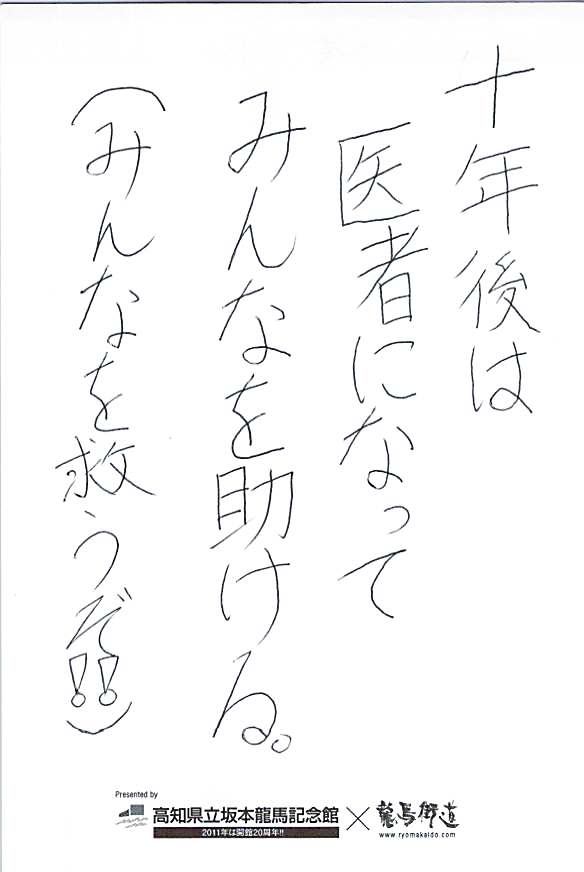 十年後は
医者になって
みんなを助ける。
(みんなを救うぞ!!)
Presented by
高知県立坂本龍馬記念館×龍馬街道
2011年は開館20周年!!
www.ryomakaido.com